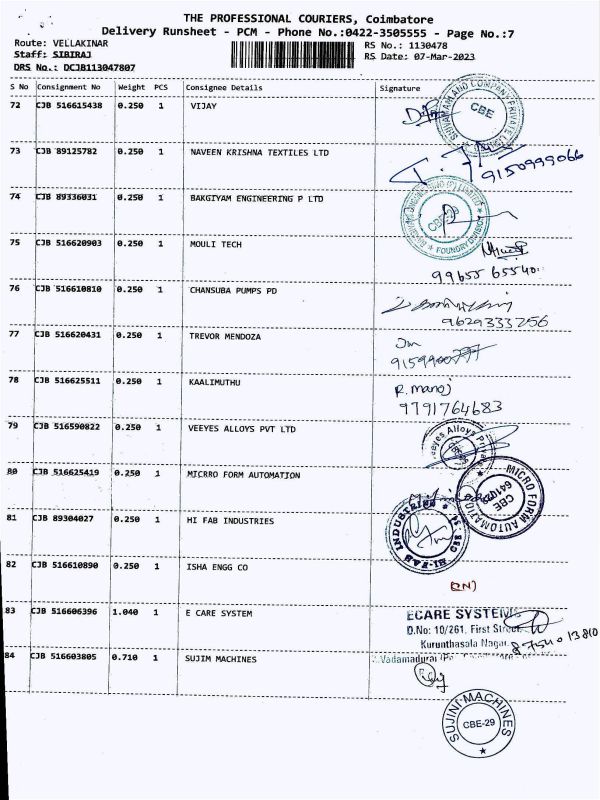 THE PROFESSIONAL COURIERS, Coimbatore
Delivery Runsheet - PCM - Phone No.:0422-3505555 - Page No.:7
Route: VELLAKINAR
RS No.: 1130478
Staff: SIBIRAJ
RS Date: 07-Mar-2023
DRS No.: DCJB113047807
S No Consignment No Weight PCS Consignee Details Signature
72 CJB 516615438 0.250 1 VIJAY
CBE
73 CJB 89125782 0.250 1 NAVEEN KRISHNA TEXTILES LTD
9150999066
74 CJB 89336031 0.250 1 BAKGIYAM ENGINEERING P LTD
FOUNDRY DIVISION
75 CJB 516620903 0.250 1 MOULI TECH
99655 65540
76 CJB 516610810 0.250 1 CHANSUBA PUMPS PD
9629333256
77 CJB 516620431 0.250 1 TREVOR MENDOZA
78 CJB 516625511 0.250 1 KAALIMUTHU
R. manoj
9791764683
79 CJB 516590822 0.250 1 VEEYES ALLOYS PVT LTD
eeyes Alloys Priva
80 CJB 516625419 0.250 1 MICRRO FORM AUTOMATION
MICRO FORM AUTOMATION
CBE
641029
81 CJB 89304027 0.250 1 HI FAB INDUSTRIES
HI-FAB INDUSTRIES
82 CJB 516610890 0.250 1 ISHA ENGG CO
83 CJB 516606396 1.040 1 E CARE SYSTEM
ECARE SYSTEMS
D.No: 10/261, First Street
Kurunthasala Nagar,
Vadamadurai
84 CJB 516603805 0.710 1 SUJIM MACHINES
SUJINI MACHINES
CBE-29